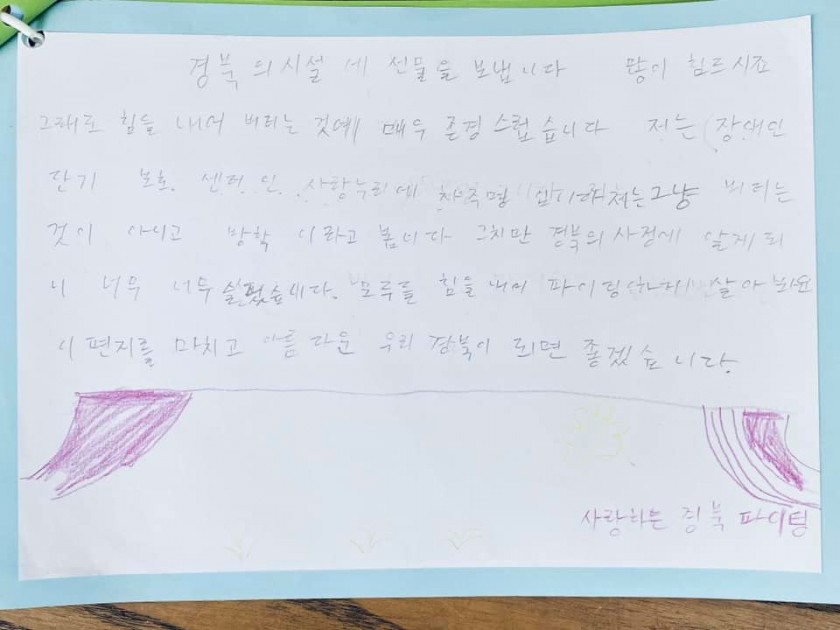 경북의시설에 선물을 보냅니다 많이 힘드시죠
그래도 힘들 내서 버티는 것에 매우 존경스럽습니다 저는 장애인
단기 보호 센터 인 사랑누리에 저는그냥 버티는
것이 아니고 방학 이라고 봅니다 그치만 경북의 사정에 알게 되
니 너무 너무 슬펐습니다. 모두들 힘들 내어 파이팅 살아 봐요
이 편지를 마치고 아름 다운 우리 경북이 되면 좋겠습니다.
사랑하는 경북 파이팅